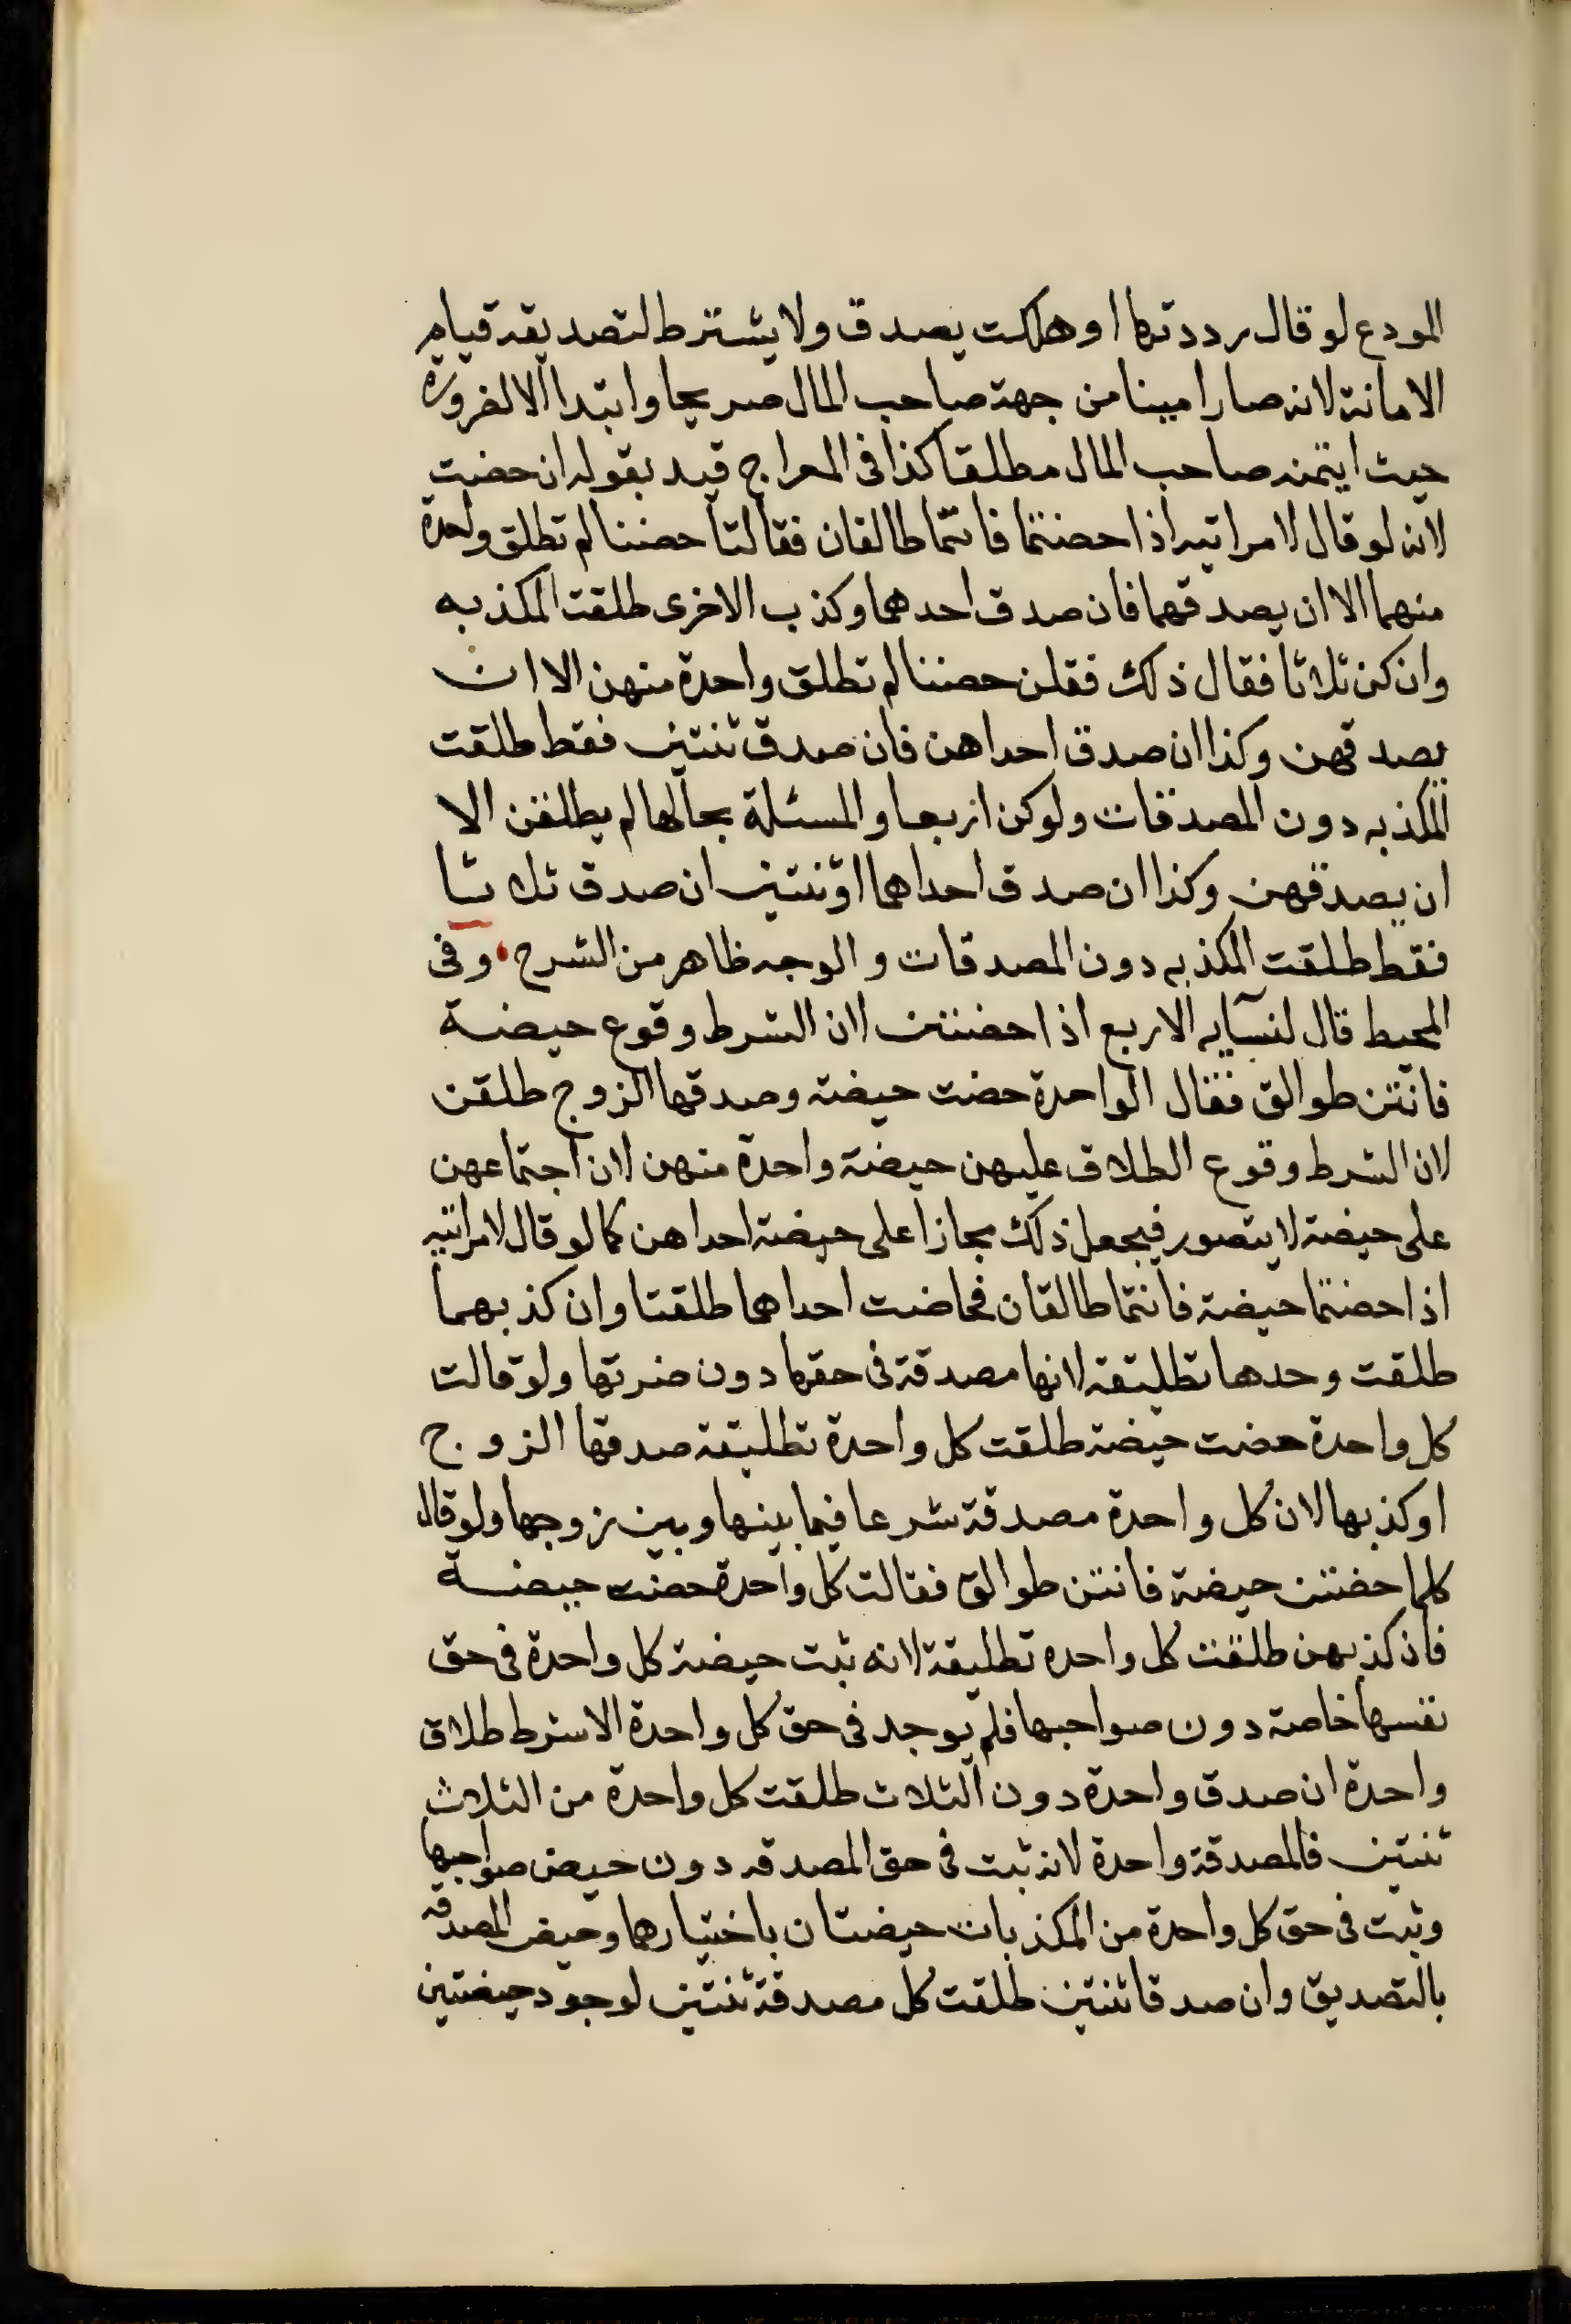 المودع لو قال رددتها او هلكت يصدق ولا يشترط لتصديقه قيام
الامانة لانه صار امينا من جهة صاحب المال صريحا وابتدا الا لضرورة
حيث ايتمنه صاحب المال مطلقا كذا فى المعراج قيد بقوله ان حضت
لانه لو قال لامراتيه اذا حضتما فانتما طالقان فقالتا حضننا لم تطلق واحدة
منهما الا ان يصدقهما فان صدق احدهما وكذب الاخرى طلقت المكذبه
وان كن ثلاثا فقال ذلك فقلن حضننا لم تطلق واحدة منهن الا ان
يصدقهن وكذا ان صدق احداهن فان صدق ثنتين فقط طلقت
المكذبه دون المصدقات ولو كن اربعا والمسئلة بحالها لم يطلقن الا
ان يصدقهن وكذا ان صدق احداهما او ثنتين ان صدق ثلاثا
فقط طلقت المكذبه دون المصدقات والوجه ظاهر من الشرح وفى
المحيط قال لنسآيه الاربع اذا حضتن لان الشرط وقوع حيضة
فانتن طوالق فقال الواحدة حضت حيضة وصدقها الزوج طلقن
لان الشرط وقوع الطلاق عليهن حيضة واحدة منهن لان اجتماعهن
على حيضة لا يتصور فيجعل ذلك مجازا على حيضة احداهن كما لو قال لامراتيه
اذا حضتما حيضة فانتما طالقان فحاضت احداهما طلقتا وان كذبهما
طلقت وحدها تطليقة لانها مصدقة فى حقها دون ضرتها ولو قالت
كل واحدة حضت حيضة طلقت كل واحدة تطليقة صدقها الزوج
او كذبها لان كل واحدة مصدقة شرعا فيما بينها وبين زوجها ولو قال
كلما حضتن حيضة فانتن طوالق فقالت كل واحدة حضت حيضة
فان كذبهن طلقت كل واحده تطليقة لانه ثبت حيضة كل واحدة فى حق
نفسها خاصة دون صواحبها فلم يوجد فى حق كل واحدة الا شرط طلاق
واحدة ان صدق واحدة دون الثلاث طلقت كل واحدة من الثلاث
ثنتين فالمصدقة واحدة لانه ثبت فى حق المصدقه دون حيض صواحبها
وثبت فى حق كل واحدة من المكذبات حيضتان باختيارهما وحيض المصدقه
بالتصديق وان صدقا ثنتين طلقت كل مصدقة ثنتين لوجود حيضتين